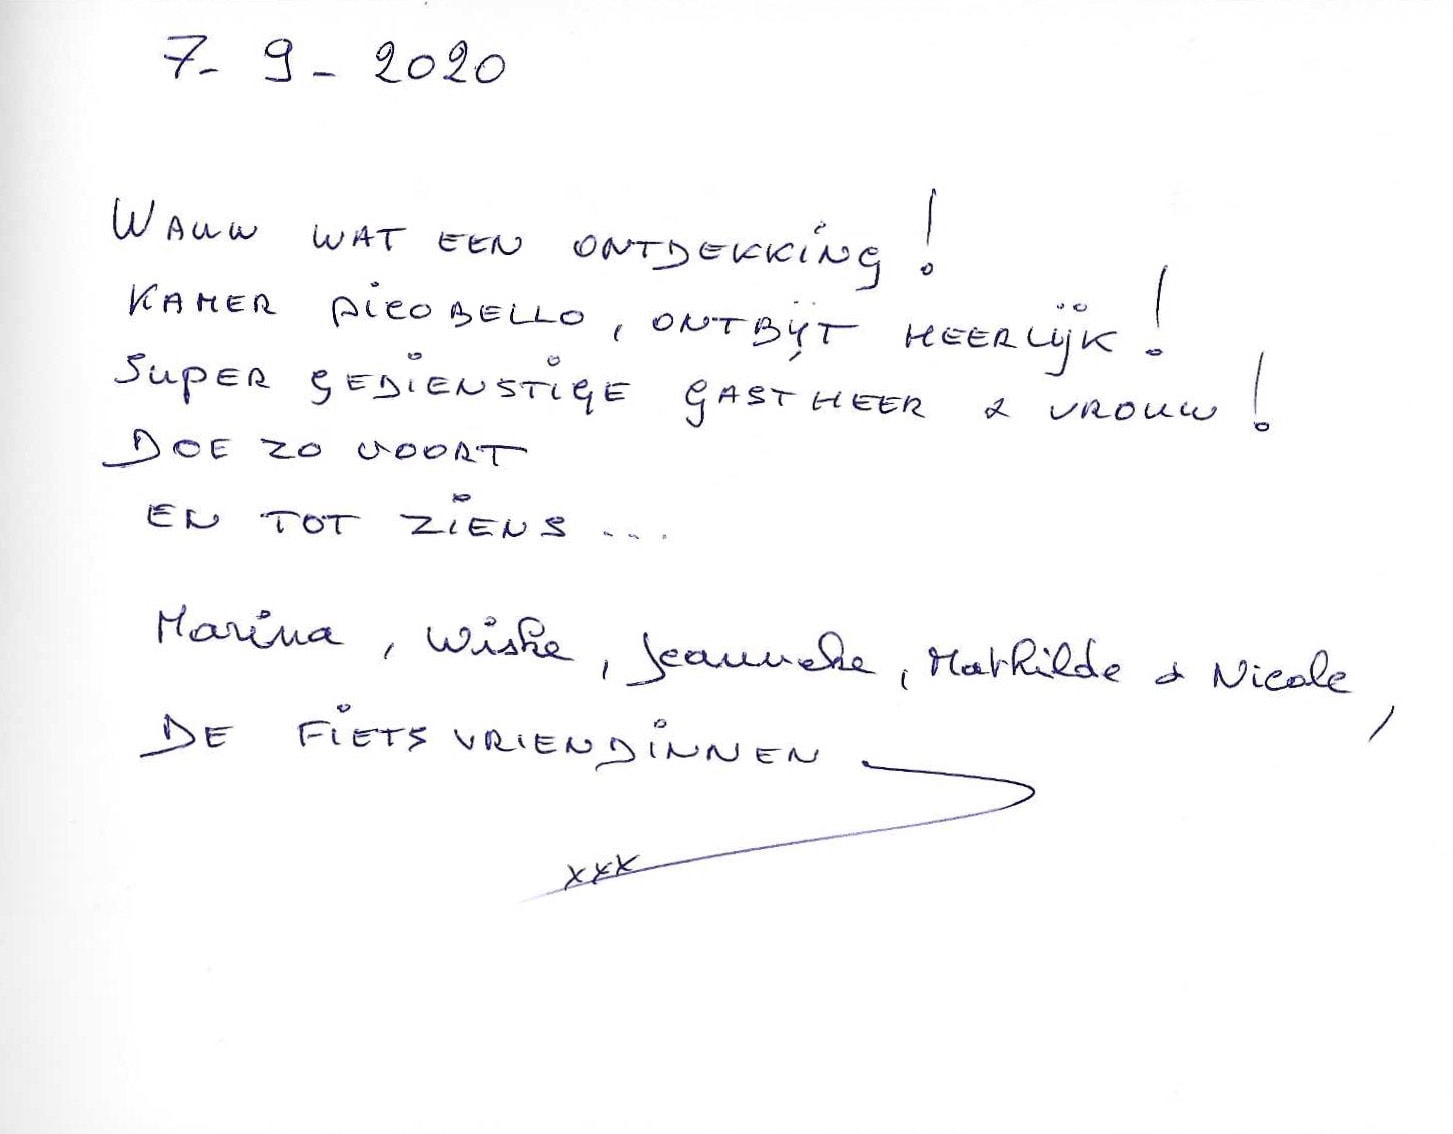 7- 9 - 2020
WAUW WAT EEN ONTDEKKING!
KAMER PICOBELLO, ONTBIJT HEERLIJK!
SUPER GEDIENSTIGE GASTHEER & VROUW!
DOE ZO VOORT
EN TOT ZIENS ...
Marina, Wiske, Jeanneke, Mathilde & Nicole,
DE FIETSVRIENDINNEN
xxx